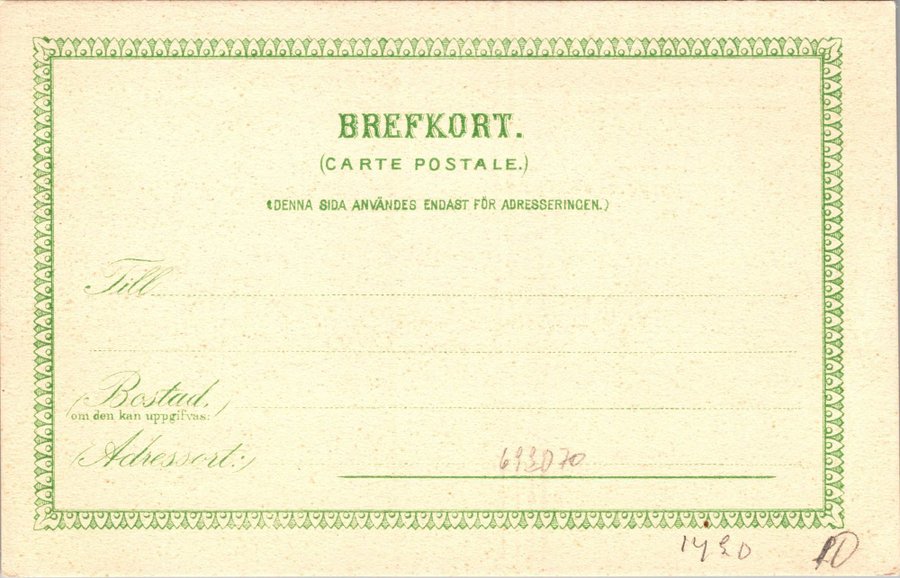 BREFKORT.
(CARTE POSTALE.)
(DENNA SIDA ANVÄNDES ENDAST FÖR ADRESSERINGEN.)
Till
(Bostad,)
om den kan uppgifvas:
(Adressort:)
693070